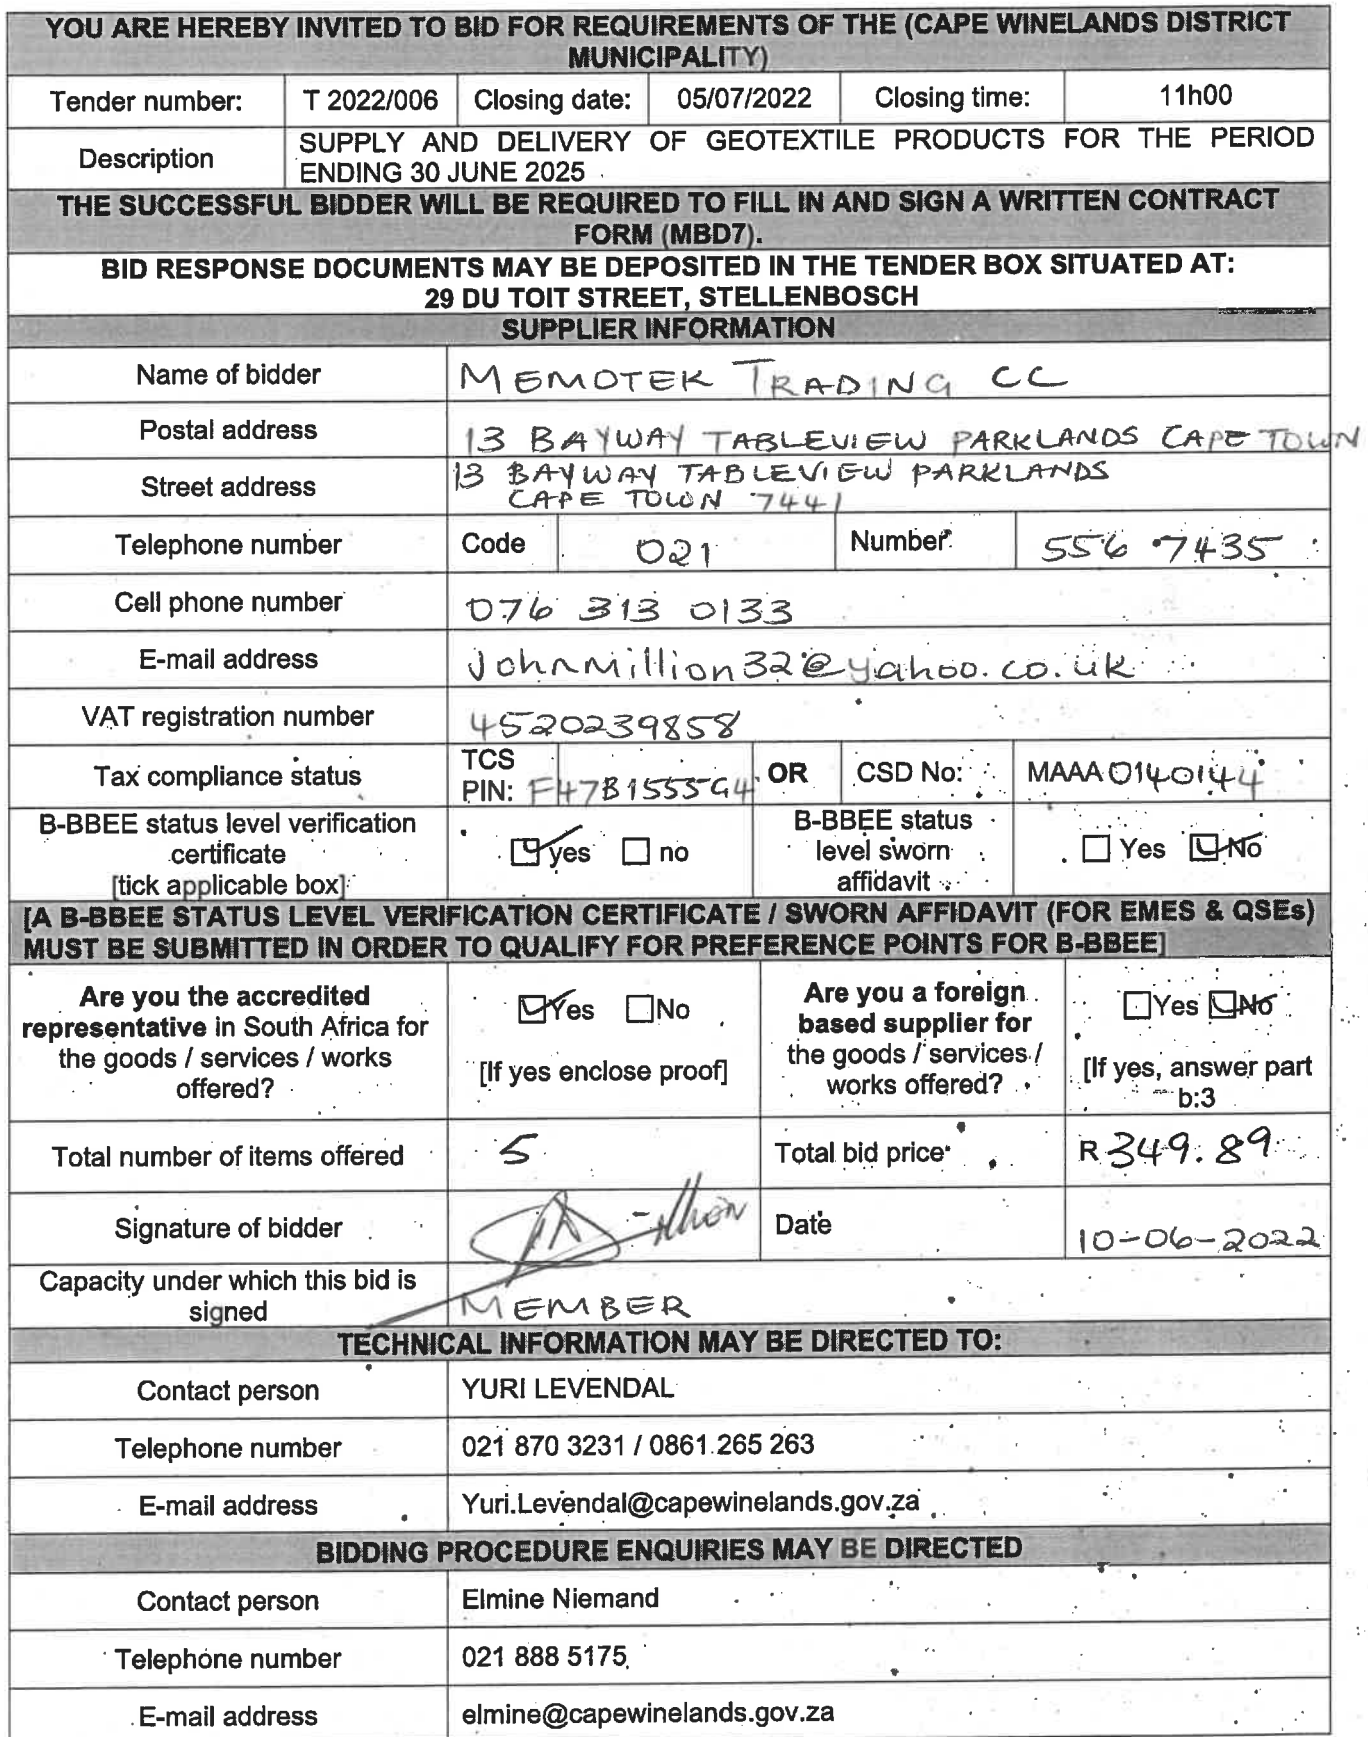 YOU ARE HEREBY INVITED TO BID FOR REQUIREMENTS OF THE (CAPE WINELANDS DISTRICT
MUNICIPALITY)
Tender number: T 2022/006 Closing date: 05/07/2022 Closing time: 11h00
Description SUPPLY AND DELIVERY OF GEOTEXTILE PRODUCTS FOR THE PERIOD
ENDING 30 JUNE 2025
THE SUCCESSFUL BIDDER WILL BE REQUIRED TO FILL IN AND SIGN A WRITTEN CONTRACT
FORM (MBD7).
BID RESPONSE DOCUMENTS MAY BE DEPOSITED IN THE TENDER BOX SITUATED AT:
29 DU TOIT STREET, STELLENBOSCH
SUPPLIER INFORMATION
Name of bidder MEMOTEK TRADING CC
Postal address 13 BAYWAY TABLEVIEW PARKLANDS CAPE TOWN
Street address 13 BAYWAY TABLEVIEW PARKLANDS
CAPE TOWN 7441
Telephone number Code 021 Number 556 7435
Cell phone number 076 313 0133
E-mail address Johnmillion32@yahoo.co.uk
VAT registration number 4520239858
Tax compliance status TCS
PIN: F47B1555G4 OR CSD No: MAAA 0140144
B-BBEE status level verification
certificate
[tick applicable box]
yes no
B-BBEE status
level sworn
affidavit
Yes No
[A B-BBEE STATUS LEVEL VERIFICATION CERTIFICATE / SWORN AFFIDAVIT (FOR EMES & QSEs)
MUST BE SUBMITTED IN ORDER TO QUALIFY FOR PREFERENCE POINTS FOR B-BBEE]
Are you the accredited
representative in South Africa for
the goods / services / works
offered?
Yes No
[If yes enclose proof]
Are you a foreign
based supplier for
the goods / services /
works offered?
Yes No
[If yes, answer part
b:3
Total number of items offered 5 Total bid price R 349.89
Signature of bidder Date 10-06-2022
Capacity under which this bid is
signed
MEMBER
TECHNICAL INFORMATION MAY BE DIRECTED TO:
Contact person YURI LEVENDAL
Telephone number 021 870 3231 / 0861 265 263
E-mail address Yuri.Levendal@capewinelands.gov.za
BIDDING PROCEDURE ENQUIRIES MAY BE DIRECTED
Contact person Elmine Niemand
Telephone number 021 888 5175
E-mail address elmine@capewinelands.gov.za